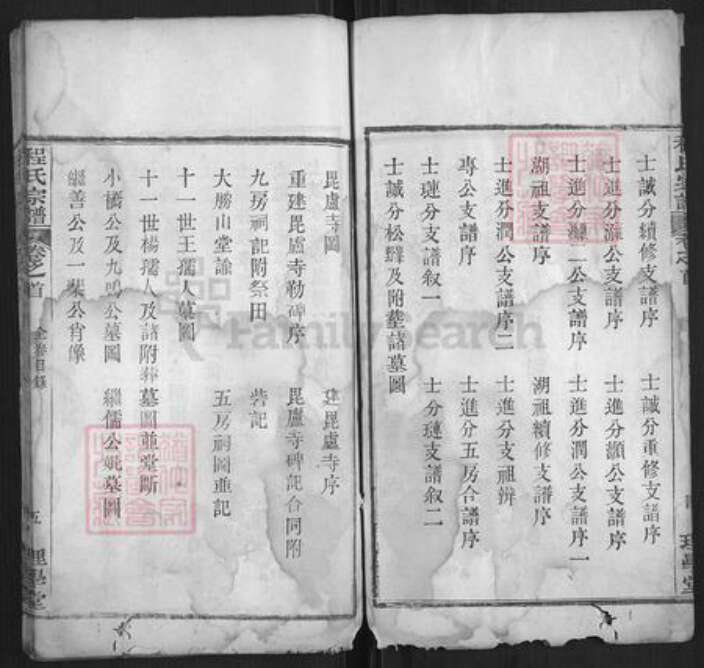 士誠分續修支譜序
士誠分重修支譜序
士進分灝公支譜序
士進分顥公支譜序
士進分灝二公支譜序
士進分潤公支譜序一
湖祖支譜序
湖祖續修支譜序
士進分潤公支譜序二
士進分支祖辨
專公支譜序
士進分五房合譜序
士璉分支譜叙一
士分璉支譜叙二
士誠分松Familysearch及附塟諸墓圖
程氏宗譜
卷之首
全卷目錄
五
理學堂
毘盧寺圖
建毘盧寺序
重建毘盧寺勒碑序
毘盧寺碑記合同附
九房祠記附祭田
砦記
大勝山堂諭
五房祠圖並記
十一世王孺人墓圖
十一世楊孺人及諸附葬墓圖並堂斷
小橋公及九鳴公墓圖
繼儒公妣墓圖
繼善公及一柴公肖像
理學堂
FamilySearch